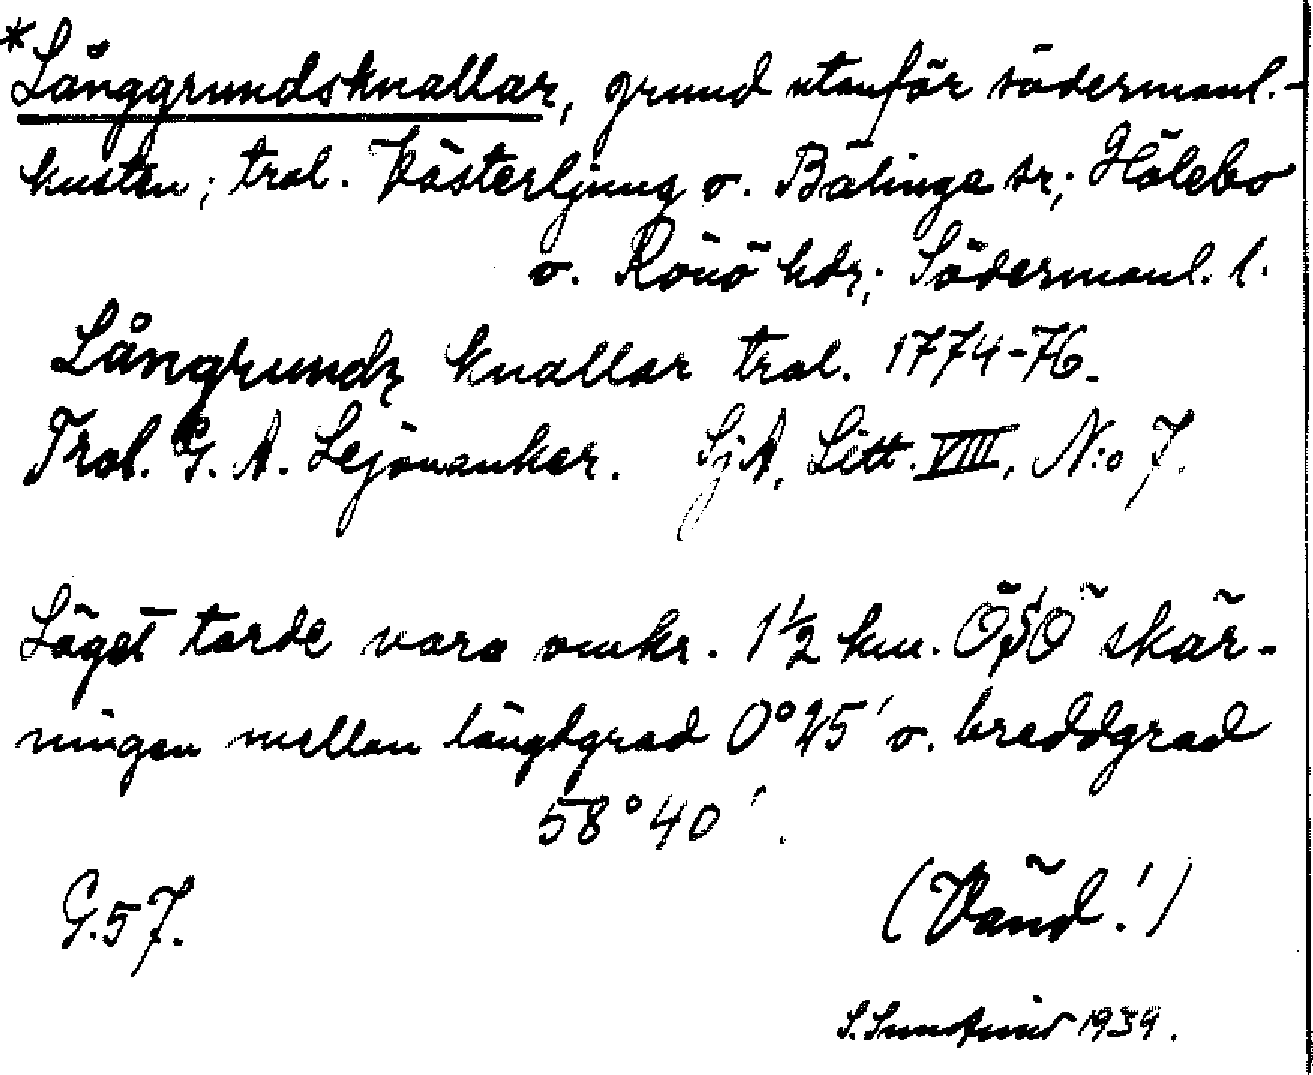 *Långgrundsknallar, grund utanför södermanl.-
kusten; trol. Västerljung o. Bälinge sr; Hölebo
o. Rönö hdr; Södermanl. l.
Långrundz knallar trol. 1774-76.
Trol. G. A. Lejonanker. SjA, Litt. VIII, N:o 7.
Läget torde vara omkr. 1½ km. ÖSÖ skär-
ningen mellan längdgrad 0° 45' o. breddgrad
58° 40'.
G.57.
(Vänd!)
S. 1939.